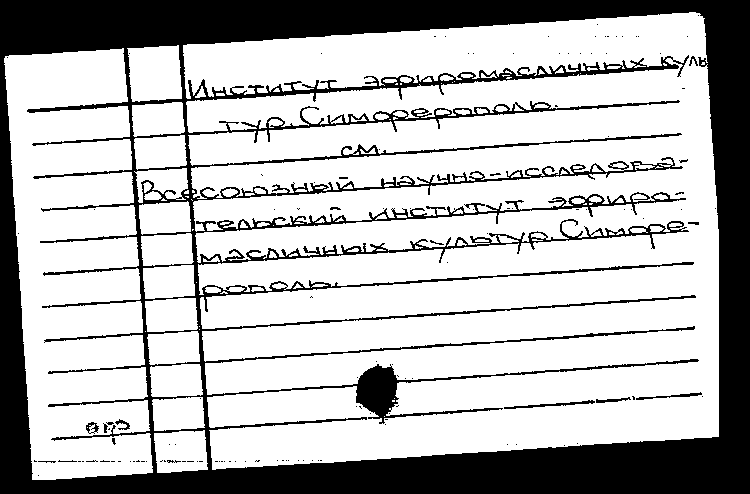 Институт эфиромасличных куль
тур. Симферополь.
см.
Всесоюзный научно-исследова-
тельский институт эфиро-
масличных культур. Симфе-
рополь.